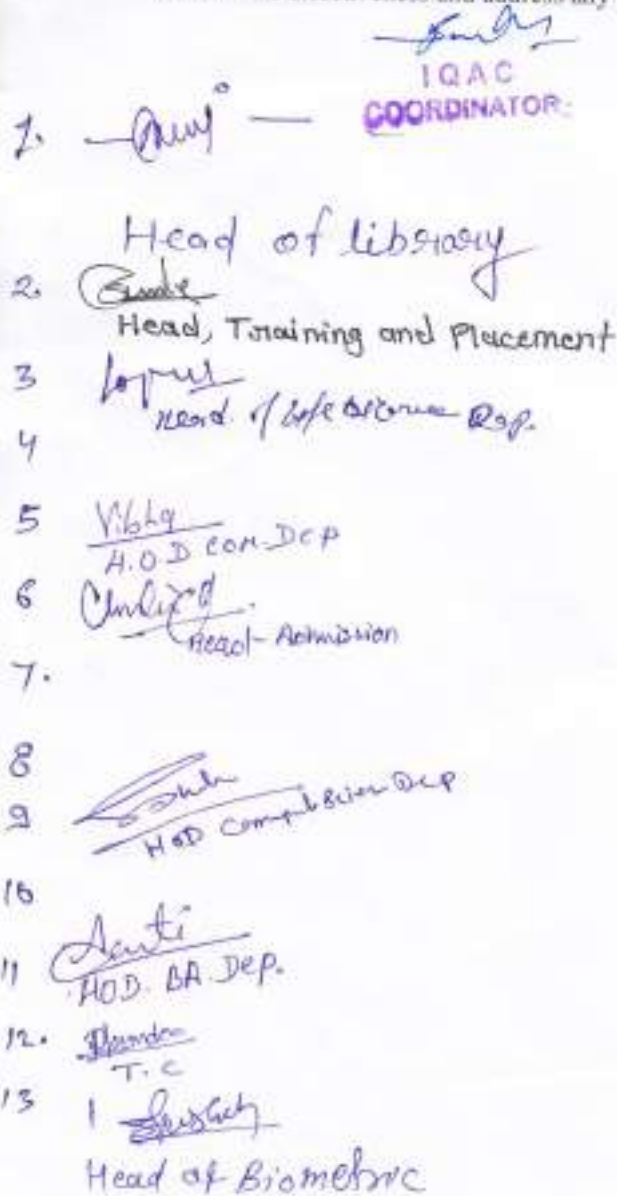 and address any
IQAC
COORDINATOR
1.
Head of library
2.
Head, Training and Placement
3
Head of Life Science Dep.
4
5 Vibha
H.O.D COM-DEP
6
Head-Admission
7.
8
9
HOD Computer Scien Dep
10
11 Aarti
HOD. BA. Dep.
12.
T.C
13
Head of Biometric